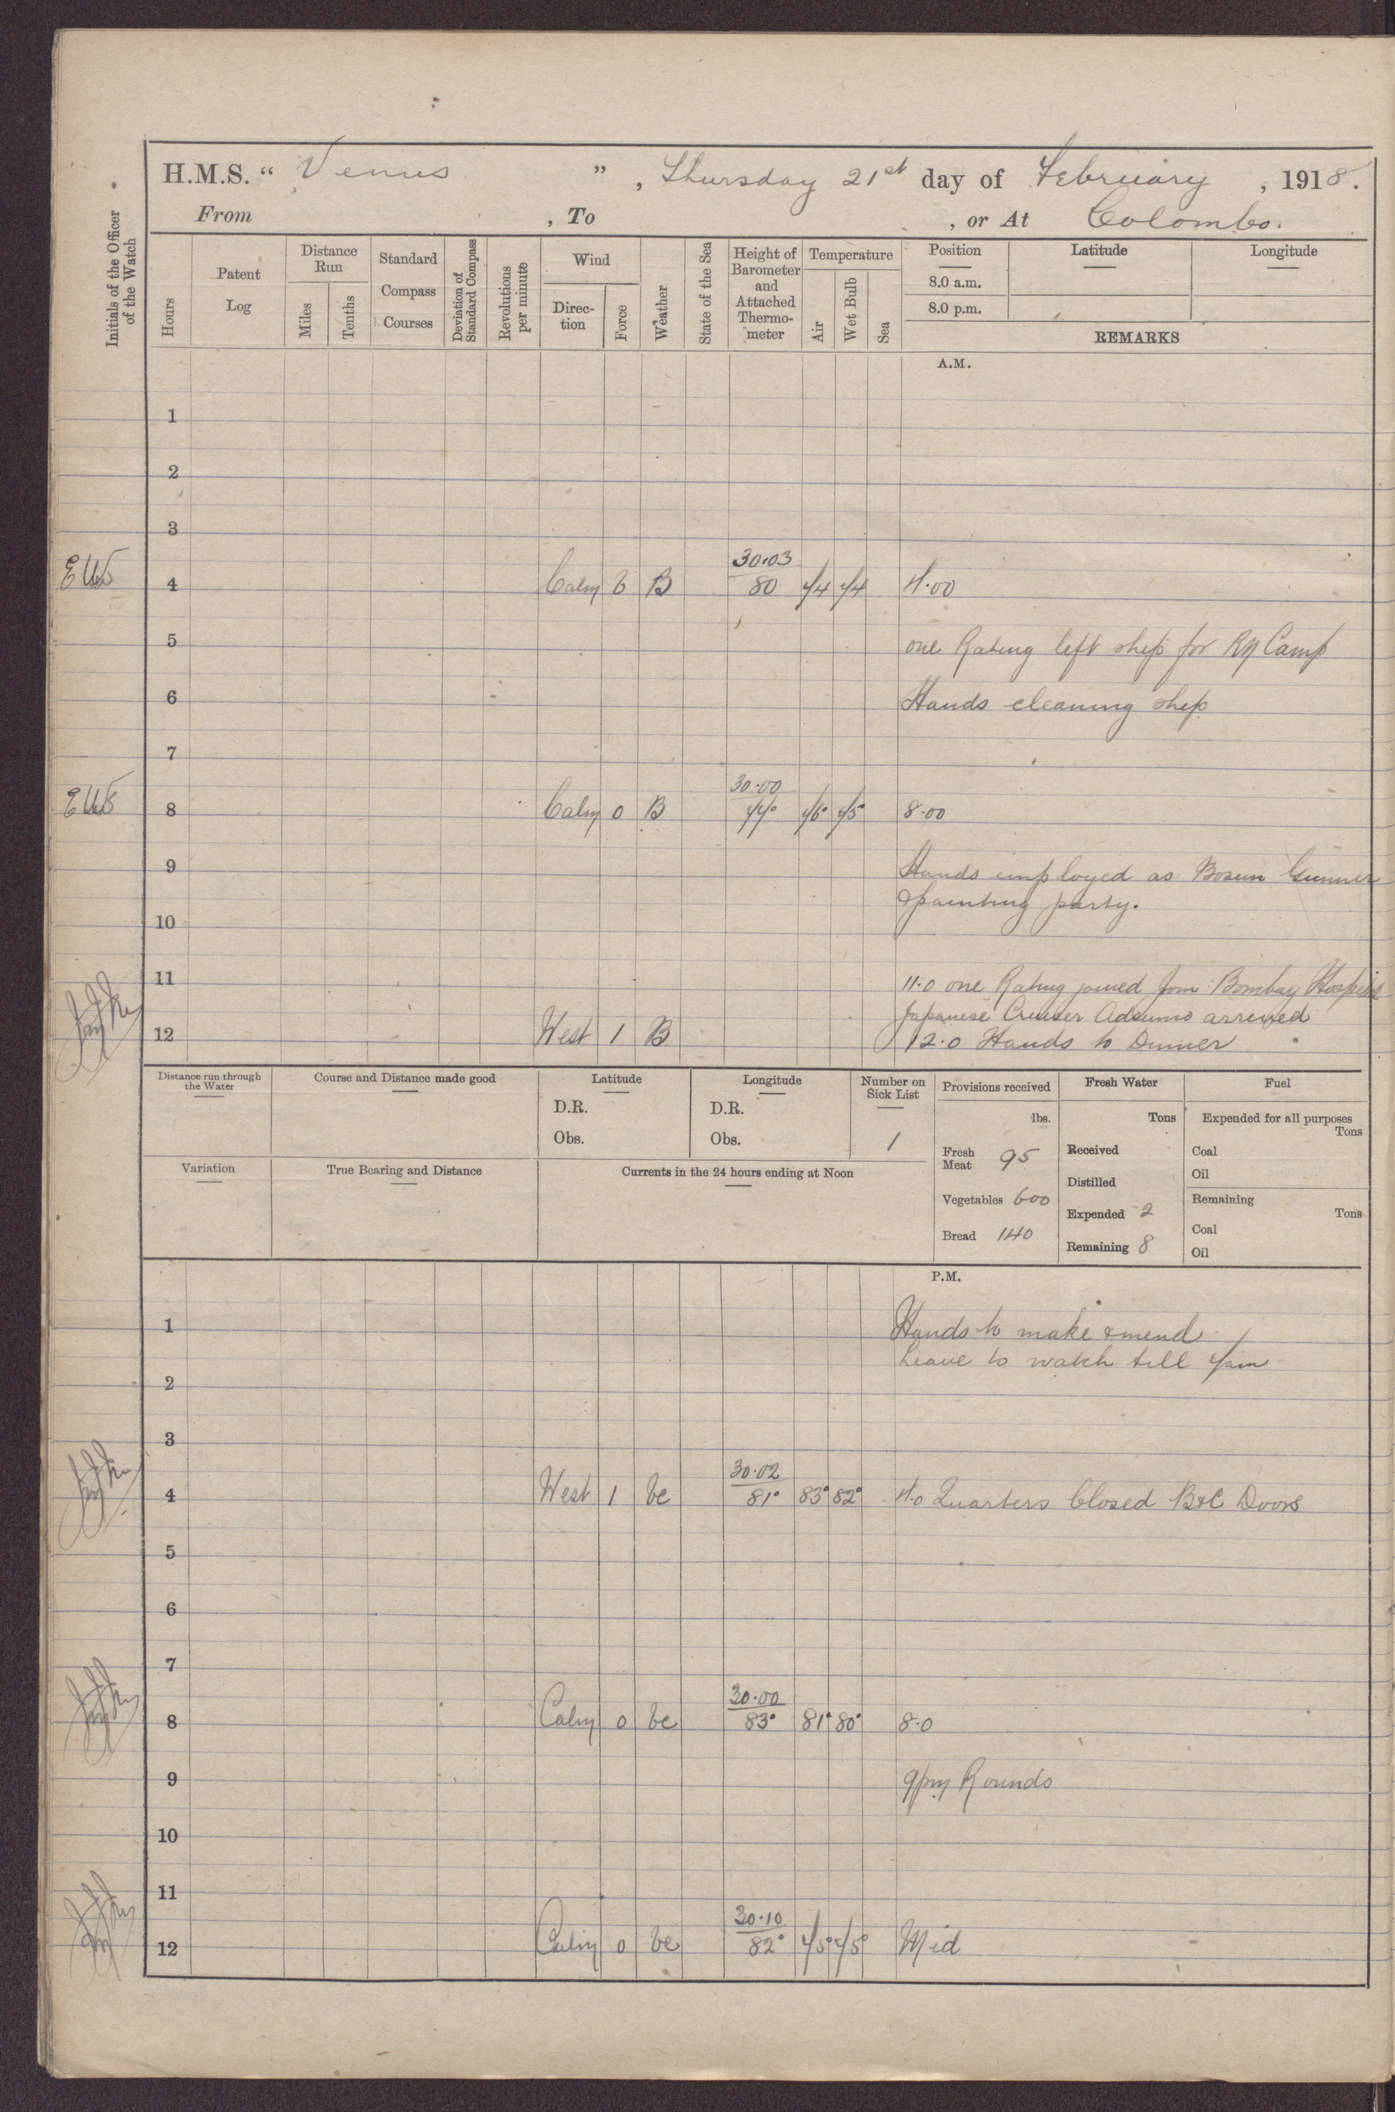 H.M.S. " Venus ", Thursday 21st day of February, 1918.
From , To , or At Colombo.
Initials of the Officer of the Watch
Hours
Patent Log
Distance Run
Miles
Tenths
Standard Compass Courses
Deviation of Standard Compass
Revolutions per minute
Wind
Direction
Force
Weather
State of the Sea
Height of Barometer and Attached Thermometer
Temperature
Air
Wet Bulb
Sea
Position
8.0 a.m.
8.0 p.m.
Latitude
Longitude
REMARKS
A.M.
1
2
3
4 Calm B 30.03 80 74 74 4.00
5 one Rating left ship for RN Camp
6 Hands cleaning ship
7
8 Calm 0 B 30.00 77° 76° 75° 8.00
9 Hands employed as Bosun Gunner
& painting party.
10
11 11.0 one Rating joined from Bombay Hospital
Japanese Cruiser arrived
12 West 1 B 12.0 Hands to Dinner
Distance run through the Water
Course and Distance made good
Latitude
D.R.
Obs.
Longitude
D.R.
Obs.
Number on Sick List
1
Provisions received
lbs.
Fresh Meat 95
Vegetables 600
Bread 140
Fresh Water
Tons
Received
Distilled
Expended 2
Remaining 8
Fuel
Expended for all purposes
Tons
Coal
Oil
Remaining
Tons
Coal
Oil
Variation
True Bearing and Distance
Currents in the 24 hours ending at Noon
P.M.
1 Hands to make & mend
Leave to watch till 7am
2
3
4 West 1 bc 30.02 81° 83° 82° 4.0 Quarters Closed B&C Doors
5
6
7
8 Calm 0 bc 30.00 83° 81° 80° 8.0
9 9pm Rounds
10
11
12 Calm 0 bc 30.10 82° 75° 75° Mid